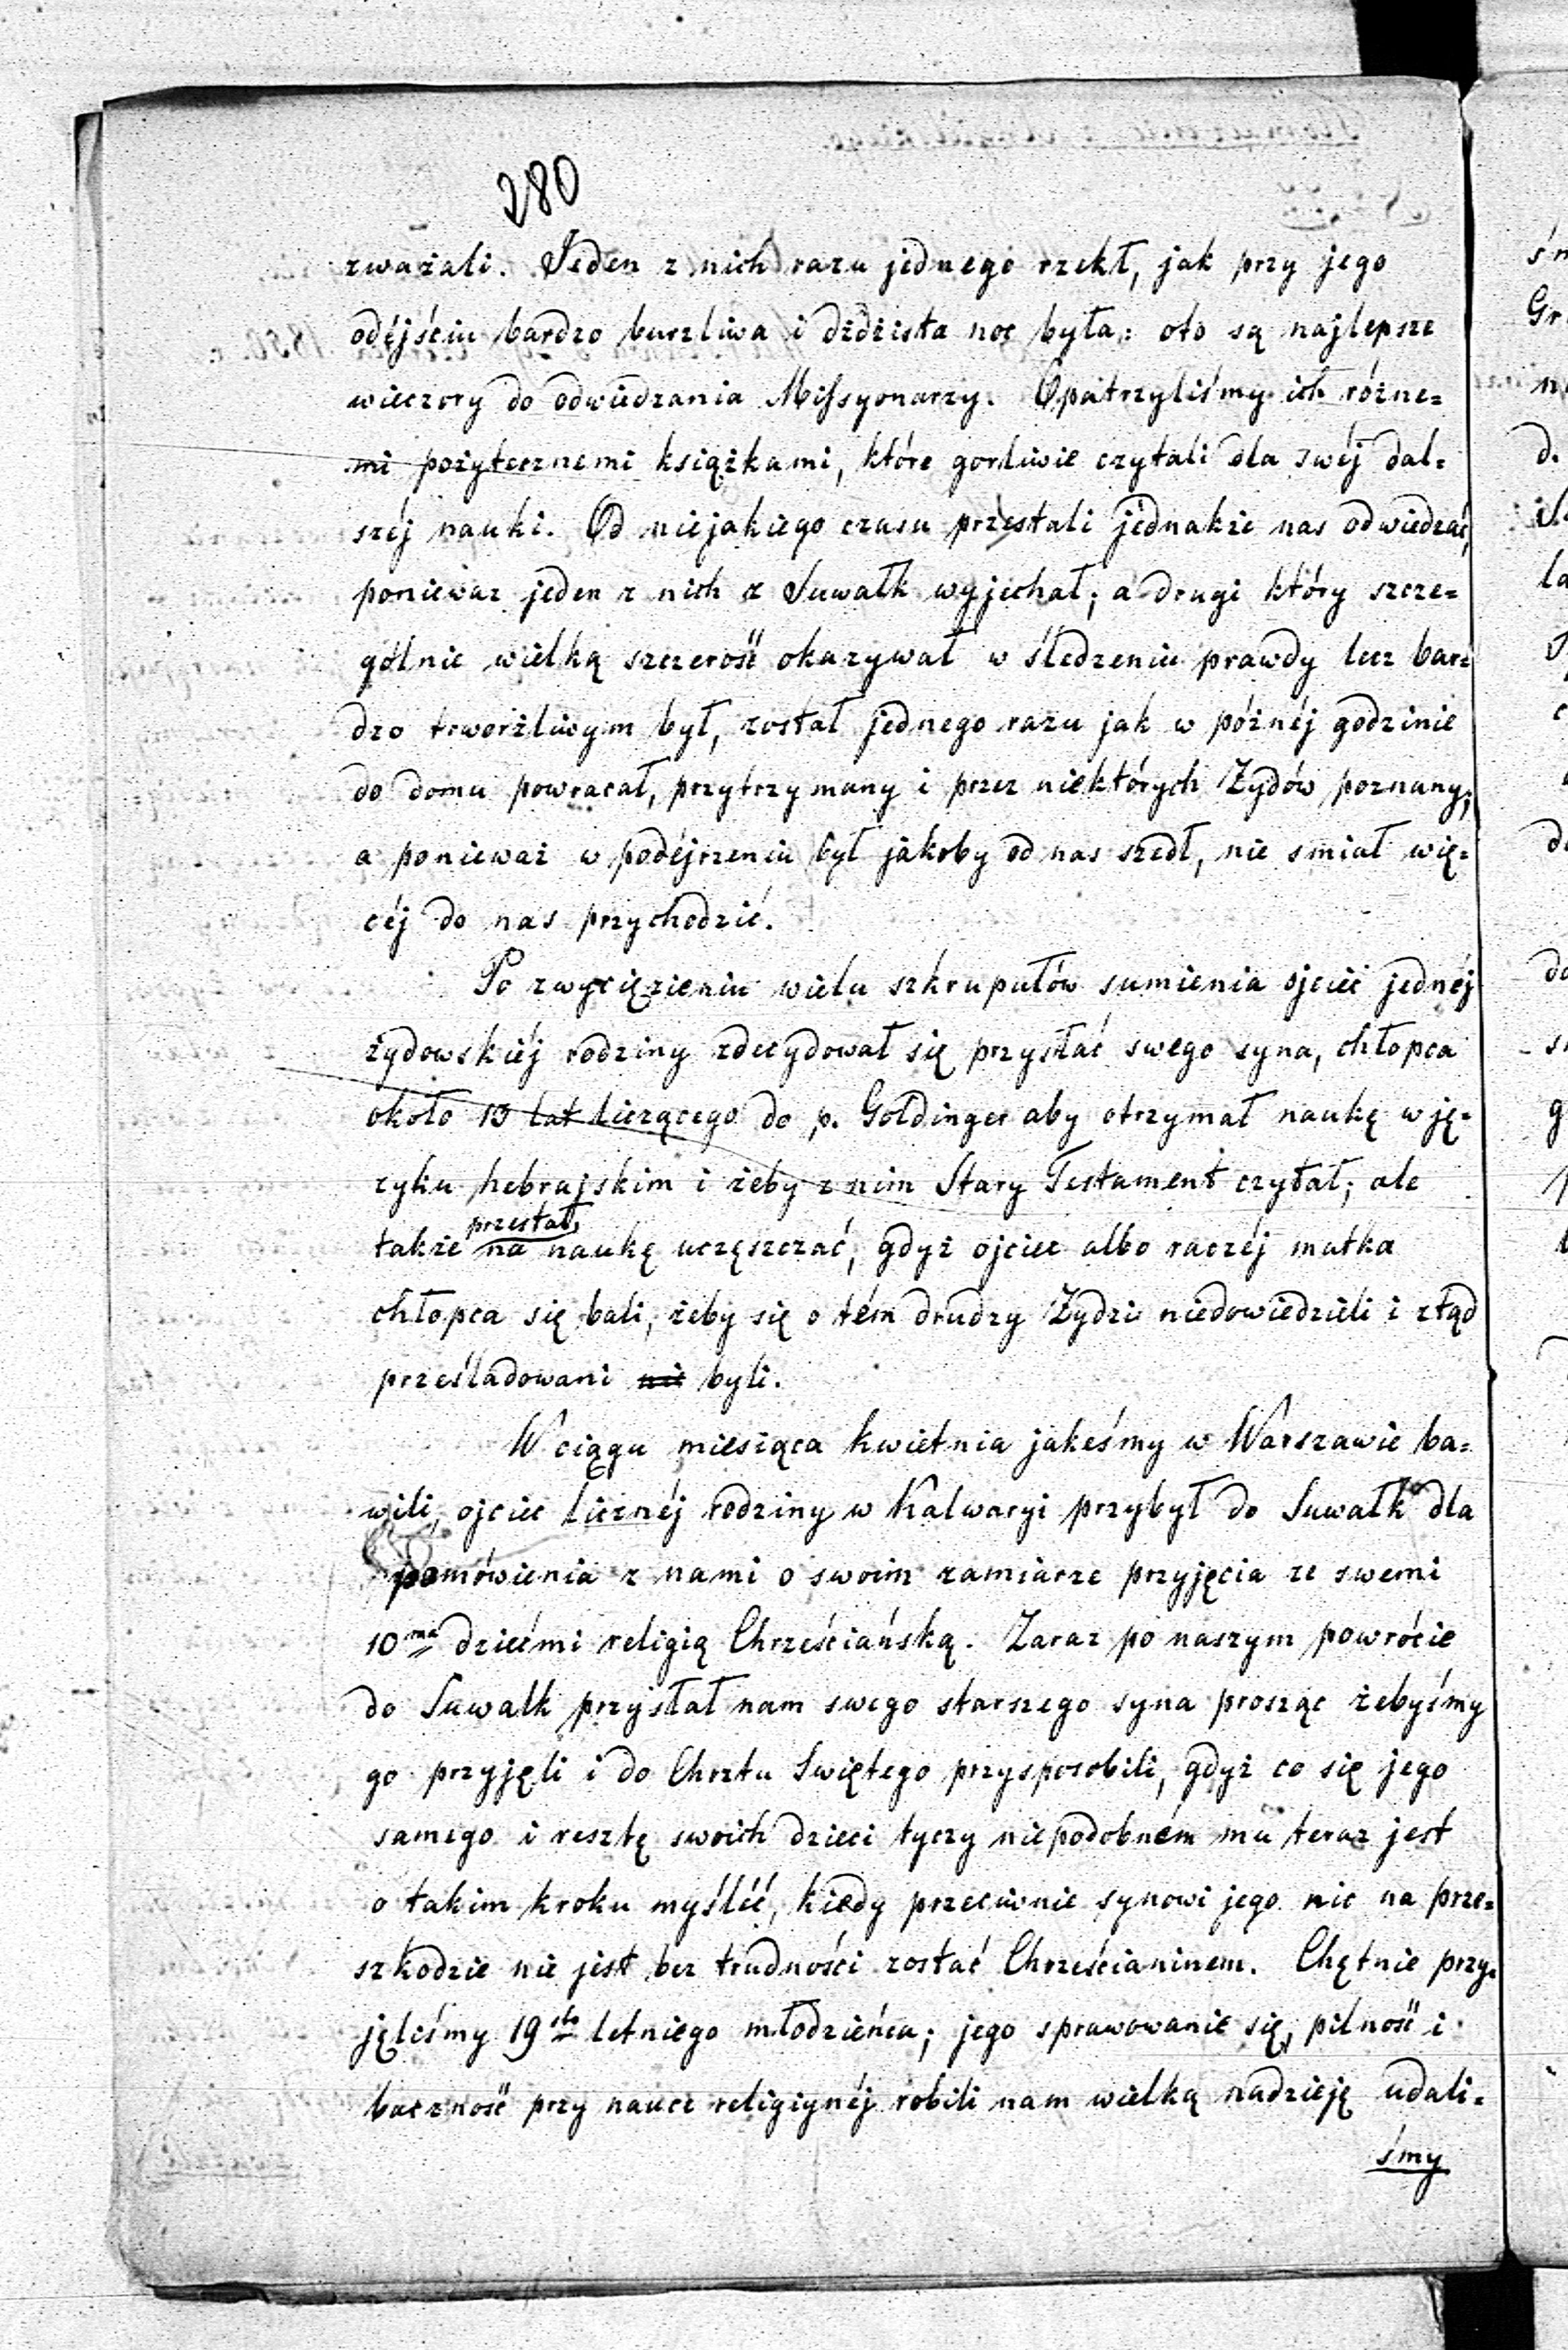 280
zważali. Jeden z nich razu jednego rzekł, jak przy jego
odéjściu bardzo burzliwa i dżdżista noc była: oto są najlepsze
wieczory do odwiedzania Missyonarzy. Opatrzyliśmy ich różne=
mi pożytecznemi książkami, które gorliwie czytali dla swéj dal=
széj nauki. Od niejakiego czasu przestali jednakże nas odwiedzać,
poniewaz jeden z nich z Suwałk wyjechał; a drugi który szcze=
gólnie wielką szczerość okazywał w śledzeniu prawdy lecz bar=
dzo trworżliwym był, został jednego razu jak w późnéj godzinie
do domu powracał, przytrzymany i przez niektórych Żydów poznany;
a ponieważ w podéjrzeniu był jakoby od nas szedł, nie smiał wię=
céj do nas przychodzić.
Po zwyciężeniu wielu szkrupułów sumienia ojciec jednéj
żydowskiéj rodziny zdecydował się przysłać swego syna, chłopca
około 13 lat liczącego do p. Goldinger aby otrzymał naukę w ję=
zyku hebrajskim i żeby z nim Stary Testament czytał; ale
przestał
także na naukę uczęszczać, gdyż ojciec albo raczéj matka
chłopca się bali, żeby się o tém drudzy Żydzi niedowiedzieli i ztąd
prześladowani nie byli.
W ciągu miesiąca kwietnia jakeśmy w Warszawie ba=
wili, ojciec licznéj rodziny w Kalwaryi przybył do Suwałk dla
pomówienia z nami o swoim zamiarze przyjęcia ze swemi
10ma dziećmi religią Chrześciańską. Zaraz po naszym powrócie
do Suwałk przysłał nam swego starszego syna prosząc żebyśmy
go przyjęli i do Chrztu Swiętego przysposobili, gdyż co się jego
samego i resztę swoich dzieci tyczy niepodobném mu teraz jest
o takim kroku myśléć, kiedy przeciwnie synowi jego nic na prze=
szkodzie nie jest bez trudności zostać Chrześcianinem. Chętnie przy=
jęliśmy 19sto letniego młodzieńca; jego sprawowanie się, pilność i
baczność przy nauce religiynéj robili nam wielką nadzieję udali=
śmy